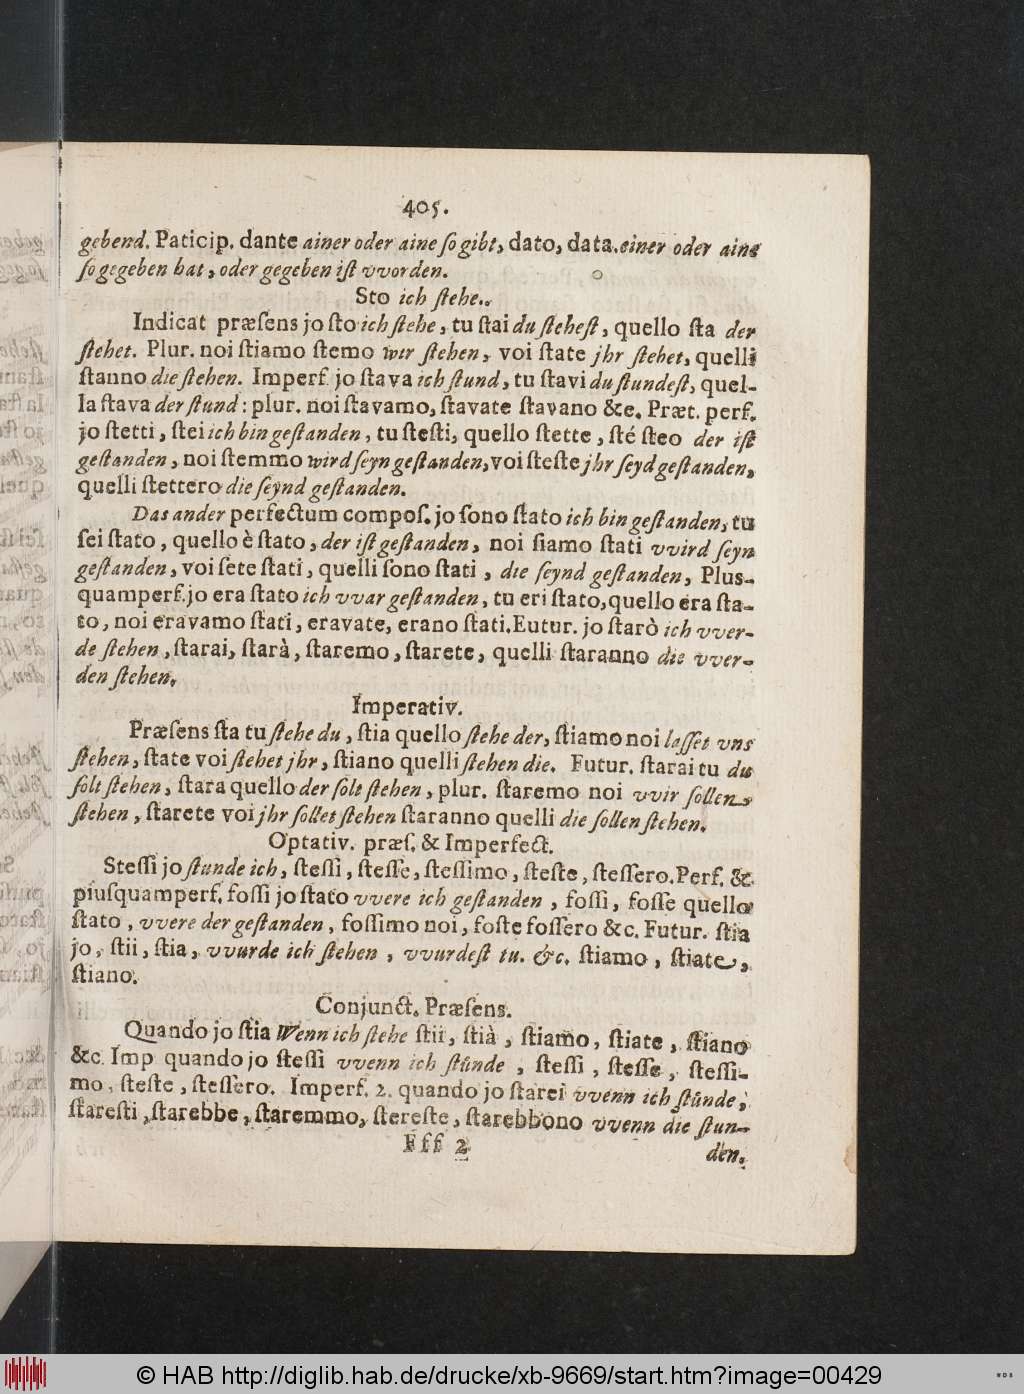 405.
gebend. Paticip. dante ainer oder aine ſo gibt, dato, data. einer oder aine
ſo gegeben hat, oder gegeben iſt vvorden.
Sto ich ſtehe.
Indicat præſens jo ſto ich ſtehe, tu ſtai du ſteheſt, quello ſta der
ſtehet. Plur. noi ſtiamo ſtemo wir ſtehen, voi ſtate jhr ſtehet, quelli
ſtanno die ſtehen. Imperf jo ſtava ich ſtund, tu ſtavi du ſtundeſt, quel-
la ſtava der ſtund: plur. noi ſtavamo, ſtavate ſtavano &c. Præt. perf.
jo ſtetti, ſtei ich bin geſtanden, tu ſteſti, quello ſtette, ſté ſteo der iſt
geſtanden, noi ſtemmo wird ſeyn geſtanden, voi ſteſte jhr ſeyd geſtanden,
quelli ſtettero die ſeynd geſtanden.
Das ander perfectum compoſ. jo ſono ſtato ich bin geſtanden, tu
ſei ſtato, quello è ſtato, der iſt geſtanden, noi ſiamo ſtati vvird ſeyn
geſtanden, voi ſete ſtati, quelli ſono ſtati, die ſeynd geſtanden, Plus-
quamperf. jo era ſtato ich vvar geſtanden, tu eri ſtato, quello era ſta-
to, noi eravamo ſtati, eravate, erano ſtati. Eutur. jo ſtarò ich vver-
de ſtehen, ſtarai, ſtarà, ſtaremo, ſtarete, quelli ſtaranno die vver-
den ſtehen.
Imperativ.
Præſens ſta tu ſtehe du, ſtia quello ſtehe der, ſtiamo noi laſſet vns
ſtehen, ſtate voi ſtehet jhr, ſtiano quelli ſtehen die. Futur. ſtarai tu du
ſolt ſtehen, ſtara quello der ſolt ſtehen, plur. ſtaremo noi vvir ſollen
ſtehen, ſtarete voi jhr ſollet ſtehen ſtaranno quelli die ſollen ſtehen.
Optativ. præſ. & Imperfect.
Steſſi jo ſtunde ich, ſteſſi, ſteſſe, ſteſſimo, ſteſte, ſteſſero. Perf. &
piuſquamperf. foſſi jo ſtato vvere ich geſtanden, foſſi, foſſe quello
ſtato, vvere der geſtanden, foſſimo noi, foſte foſſero &c. Futur. ſtia
jo, ſtii, ſtia, vvurde ich ſtehen, vvurdeſt tu. &c. ſtiamo, ſtiate,
ſtiano.
Conjunct. Præſens.
Quando jo ſtia Wenn ich ſtehe ſtii, ſtià, ſtiamo, ſtiate, ſtiano
&c. Imp quando jo ſteſſi vvenn ich ſtûnde, ſteſſi, ſteſſe, ſteſſi-
mo, ſteſte, ſteſſero. Imperf. 2. quando jo ſtarei vvenn ich ſtûnde,
ſtareſti, ſtarebbe, ſtaremmo, ſtereſte, ſtarebbono vvenn die ſtun-
Fff 2
den.
© HAB http://diglib.hab.de/drucke/xb-9669/start.htm?image=00429